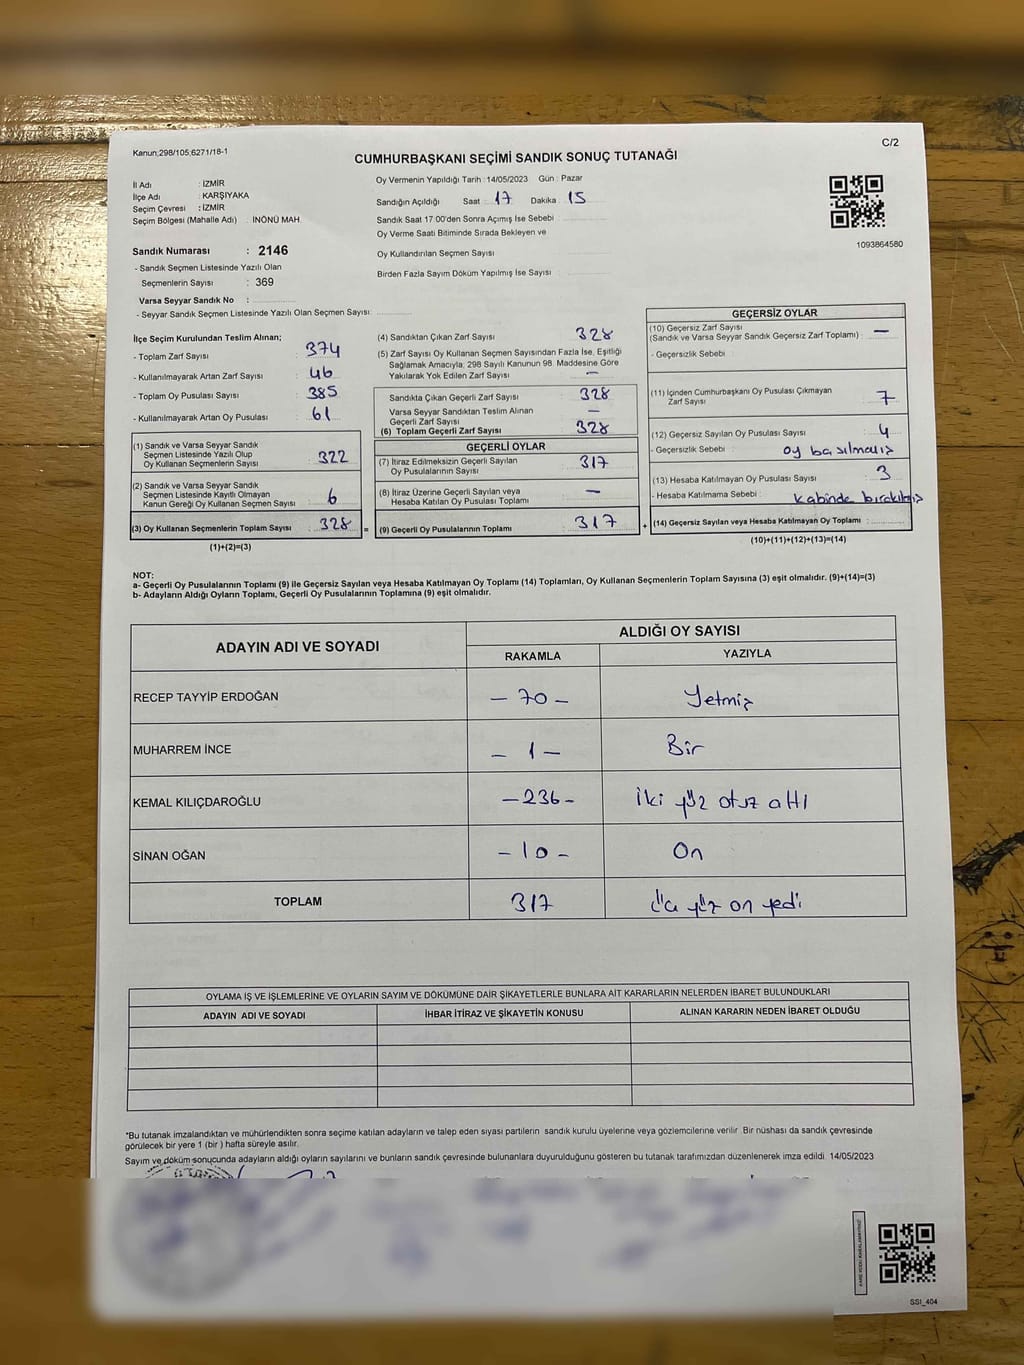 Kanun;298/105,6271/18-1
C/2
CUMHURBAŞKANI SEÇİMİ SANDIK SONUÇ TUTANAĞI
İl Adı : İZMİR
İlçe Adı : KARŞIYAKA
Seçim Çevresi : İZMİR
Seçim Bölgesi (Mahalle Adı) : İNÖNÜ MAH.
Sandık Numarası : 2146
- Sandık Seçmen Listesinde Yazılı Olan
Seçmenlerin Sayısı : 369
Varsa Seyyar Sandık No :
- Seyyar Sandık Seçmen Listesinde Yazılı Olan Seçmen Sayısı:
Oy Vermenin Yapıldığı Tarih : 14/05/2023 Gün : Pazar
Sandığın Açıldığı Saat : 17 Dakika : 15
Sandık Saat 17:00'den Sonra Açımış İse Sebebi :
Oy Verme Saati Bitiminde Sırada Bekleyen ve
Oy Kullandırılan Seçmen Sayısı :
Birden Fazla Sayım Döküm Yapılmış İse Sayısı :
1093864580
İlçe Seçim Kurulundan Teslim Alınan;
- Toplam Zarf Sayısı : 374
- Kullanılmayarak Artan Zarf Sayısı : 46
- Toplam Oy Pusulası Sayısı : 385
- Kullanılmayarak Artan Oy Pusulası : 61
(1) Sandık ve Varsa Seyyar Sandık
Seçmen Listesinde Yazılı Olup
Oy Kullanan Seçmenlerin Sayısı : 322
(2) Sandık ve Varsa Seyyar Sandık
Seçmen Listesinde Kayıtlı Olmayan
Kanun Gereği Oy Kullanan Seçmen Sayısı : 6
(3) Oy Kullanan Seçmenlerin Toplam Sayısı : 328 =
(1)+(2)=(3)
(4) Sandıktan Çıkan Zarf Sayısı : 328
(5) Zarf Sayısı Oy Kullanan Seçmen Sayısından Fazla İse, Eşitliği
Sağlamak Amacıyla, 298 Sayılı Kanunun 98. Maddesine Göre
Yakılarak Yok Edilen Zarf Sayısı : —
Sandıkta Çıkan Geçerli Zarf Sayısı : 328
Varsa Seyyar Sandıktan Teslim Alınan
Geçerli Zarf Sayısı : —
(6) Toplam Geçerli Zarf Sayısı : 328
GEÇERLİ OYLAR
(7) İtiraz Edilmeksizin Geçerli Sayılan
Oy Pusulalarının Sayısı : 317
(8) İtiraz Üzerine Geçerli Sayılan veya
Hesaba Katılan Oy Pusulası Toplamı : —
(9) Geçerli Oy Pusulalarının Toplamı : 317 +
GEÇERSİZ OYLAR
(10) Geçersiz Zarf Sayısı
(Sandık ve Varsa Seyyar Sandık Geçersiz Zarf Toplamı) : —
- Geçersizlik Sebebi :
(11) İçinden Cumhurbaşkanı Oy Pusulası Çıkmayan
Zarf Sayısı : 7
(12) Geçersiz Sayılan Oy Pusulası Sayısı : 4
- Geçersizlik Sebebi : oy basılmamış
(13) Hesaba Katılmayan Oy Pusulası Sayısı : 3
- Hesaba Katılmama Sebebi : kabinde bırakılmış
(14) Geçersiz Sayılan veya Hesaba Katılmayan Oy Toplamı :
(10)+(11)+(12)+(13)=(14)
NOT:
a- Geçerli Oy Pusulalarının Toplamı (9) ile Geçersiz Sayılan veya Hesaba Katılmayan Oy Toplamı (14) Toplamları, Oy Kullanan Seçmenlerin Toplam Sayısına (3) eşit olmalıdır. (9)+(14)=(3)
b- Adayların Aldığı Oyların Toplamı, Geçerli Oy Pusulalarının Toplamına (9) eşit olmalıdır.
ADAYIN ADI VE SOYADI
ALDIĞI OY SAYISI
RAKAMLA YAZIYLA
RECEP TAYYİP ERDOĞAN - 70 - Yetmiş
MUHARREM İNCE - 1 - Bir
KEMAL KILIÇDAROĞLU - 236 - iki yüz otuz altı
SİNAN OĞAN - 10 - On
TOPLAM 317 üç yüz on yedi
OYLAMA İŞ VE İŞLEMLERİNE VE OYLARIN SAYIM VE DÖKÜMÜNE DAİR ŞİKAYETLERLE BUNLARA AİT KARARLARIN NELERDEN İBARET BULUNDUKLARI
ADAYIN ADI VE SOYADI İHBAR İTİRAZ VE ŞİKAYETİN KONUSU ALINAN KARARIN NEDEN İBARET OLDUĞU
*Bu tutanak imzalandıktan ve mühürlendikten sonra seçime katılan adayların ve talep eden siyasi partilerin sandık kurulu üyelerine veya gözlemcilerine verilir. Bir nüshası da sandık çevresinde
görülecek bir yere 1 (bir) hafta süreyle asılır.
Sayım ve döküm sonucunda adayların aldığı oyların sayılarını ve bunların sandık çevresinde bulunanlara duyurulduğunu gösteren bu tutanak tarafımızdan düzenlenerek imza edildi. 14/05/2023
SSI_404